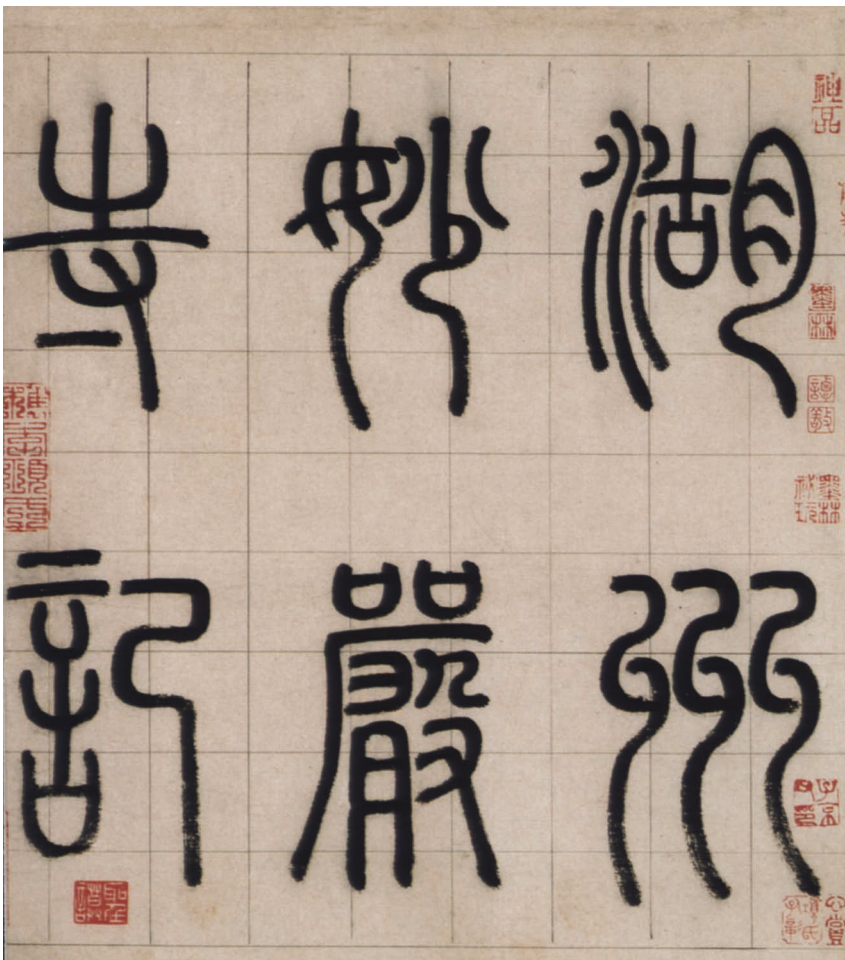 湖州
妙嚴
寺記